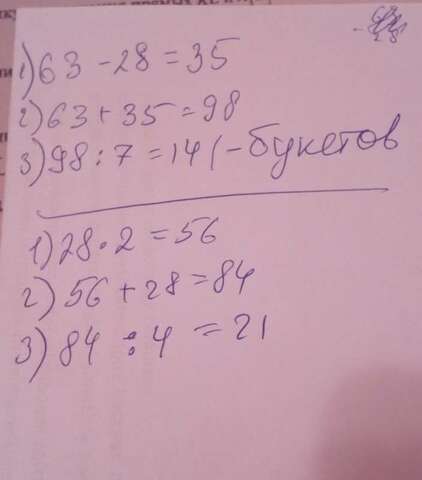 1) 63 - 28 = 35
2) 63 + 35 = 98
3) 98 : 7 = 14 (- букетов
1) 28 · 2 = 56
2) 56 + 28 = 84
3) 84 : 4 = 21